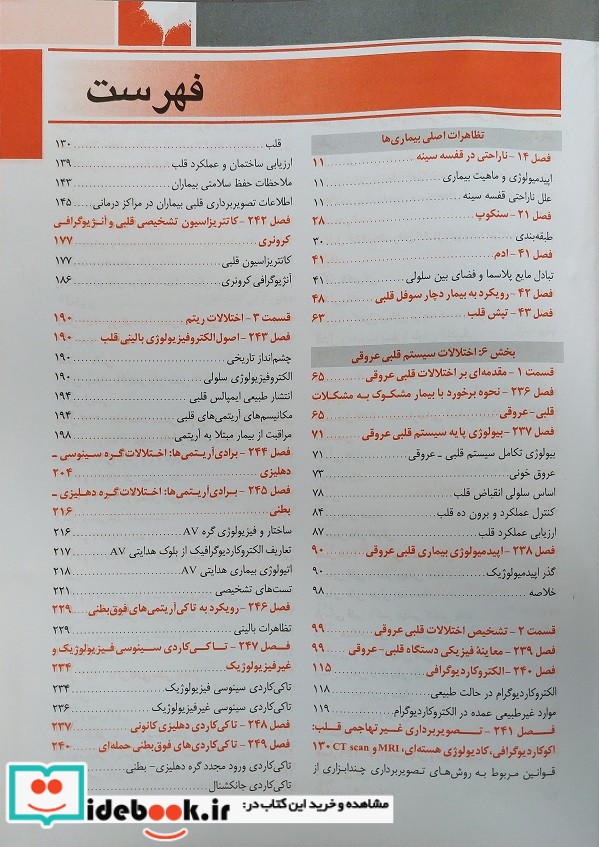 فهرست
تظاهرات اصلی بیماری‌ها
فصل ۱۴ - ناراحتی در قفسه سینه ۱۱
اپیدمیولوژی و ماهیت بیماری ۱۱
علل ناراحتی قفسه سینه ۱۱
فصل ۲۱ - سنکوپ ۲۸
طبقه‌بندی ۳۰
فصل ۴۱ - ادم ۴۱
تبادل مایع پلاسما و فضای بین سلولی ۴۱
فصل ۴۲ - رویکرد به بیمار دچار سوفل قلبی ۴۸
فصل ۴۳ - تپش قلب ۶۳
بخش ۶: اختلالات سیستم قلبی عروقی
قسمت ۱ - مقدمه‌ای بر اختلالات قلبی عروقی ۶۵
فصل ۲۳۶ - نحوه برخورد با بیمار مشکوک به مشکلات
قلبی - عروقی ۶۵
فصل ۲۳۷ - بیولوژی پایه سیستم قلبی عروقی ۷۱
بیولوژی تکامل سیستم قلبی ـ عروقی ۷۱
عروق خونی ۷۳
اساس سلولی انقباض قلب ۷۸
کنترل عملکرد و برون ده قلب ۸۴
ارزیابی عملکرد قلب ۸۷
فصل ۲۳۸ - اپیدمیولوژی بیماری قلبی عروقی ۹۰
گذر اپیدمیولوژیک ۹۰
خلاصه ۹۸
قسمت ۲ - تشخیص اختلالات قلبی عروقی ۹۹
فصل ۲۳۹ - معاینهٔ فیزیکی دستگاه قلبی - عروقی ۹۹
فصل ۲۴۰ - الکتروکاردیوگرافی ۱۱۵
الکتروکاردیوگرام در حالت طبیعی ۱۱۸
موارد غیرطبیعی عمده در الکتروکاردیوگرام ۱۱۹
فصل ۲۴۱ - تصویربرداری غیرتهاجمی قلب:
اکوکاردیوگرافی، کادیولوژی هسته‌ای، MRI و CT scan ۱۳۰
قوانین مربوط به روش‌های تصویربرداری چندابزاری از
قلب ۱۳۰
ارزیابی ساختمان و عملکرد قلب ۱۳۹
ملاحظات حفظ سلامتی بیماران ۱۴۳
اطلاعات تصویربرداری قلبی بیماران در مراکز درمانی ۱۴۵
فصل ۲۴۲ - کاتتریزاسیون تشخیصی قلبی و آنژیوگرافی
کرونری ۱۷۷
کاتتریزاسیون قلبی ۱۷۷
آنژیوگرافی کرونری ۱۸۶
قسمت ۳ - اختلالات ریتم ۱۹۰
فصل ۲۴۳ - اصول الکتروفیزیولوژی بالینی قلب ۱۹۰
چشم‌انداز تاریخی ۱۹۰
الکتروفیزیولوژی سلولی ۱۹۰
انتشار طبیعی ایمپالس قلبی ۱۹۴
مکانیسم‌های آریتمی‌های قلبی ۱۹۴
مراقبت از بیمار مبتلا به آریتمی ۱۹۸
فصل ۲۴۴ - برادی‌آریتمی‌ها: اختلالات گره سینوسی ـ
دهلیزی ۲۰۴
فصل ۲۴۵ - برادی‌آریتمی‌ها: اختلالات گره دهلیزی ـ
بطنی ۲۱۶
ساختار و فیزیولوژی گره AV ۲۱۶
تعاریف الکتروکاردیوگرافیک از بلوک هدایتی AV ۲۱۷
اتیولوژی بیماری هدایتی AV ۲۱۸
تست‌های تشخیصی ۲۲۱
فصل ۲۴۶ - رویکرد به تاکی‌آریتمی‌های فوق‌بطنی ۲۲۹
تظاهرات بالینی ۲۲۹
فصل ۲۴۷ - تاکی‌کاردی سینوسی فیزیولوژیک و
غیرفیزیولوژیک ۲۳۴
تاکی‌کاردی سینوسی فیزیولوژیک ۲۳۴
تاکی‌کاردی سینوسی غیرفیزیولوژیک ۲۳۶
فصل ۲۴۸ - تاکی‌کاردی دهلیزی کانونی ۲۳۷
فصل ۲۴۹ - تاکی‌کاردی‌های فوق‌بطنی حمله‌ای ۲۴۰
تاکی‌کاردی ورود مجدد گره دهلیزی - بطنی
تاکی‌کاردی جانکشنال
مشاهده و خرید این کتاب در:
iranidebook.ir